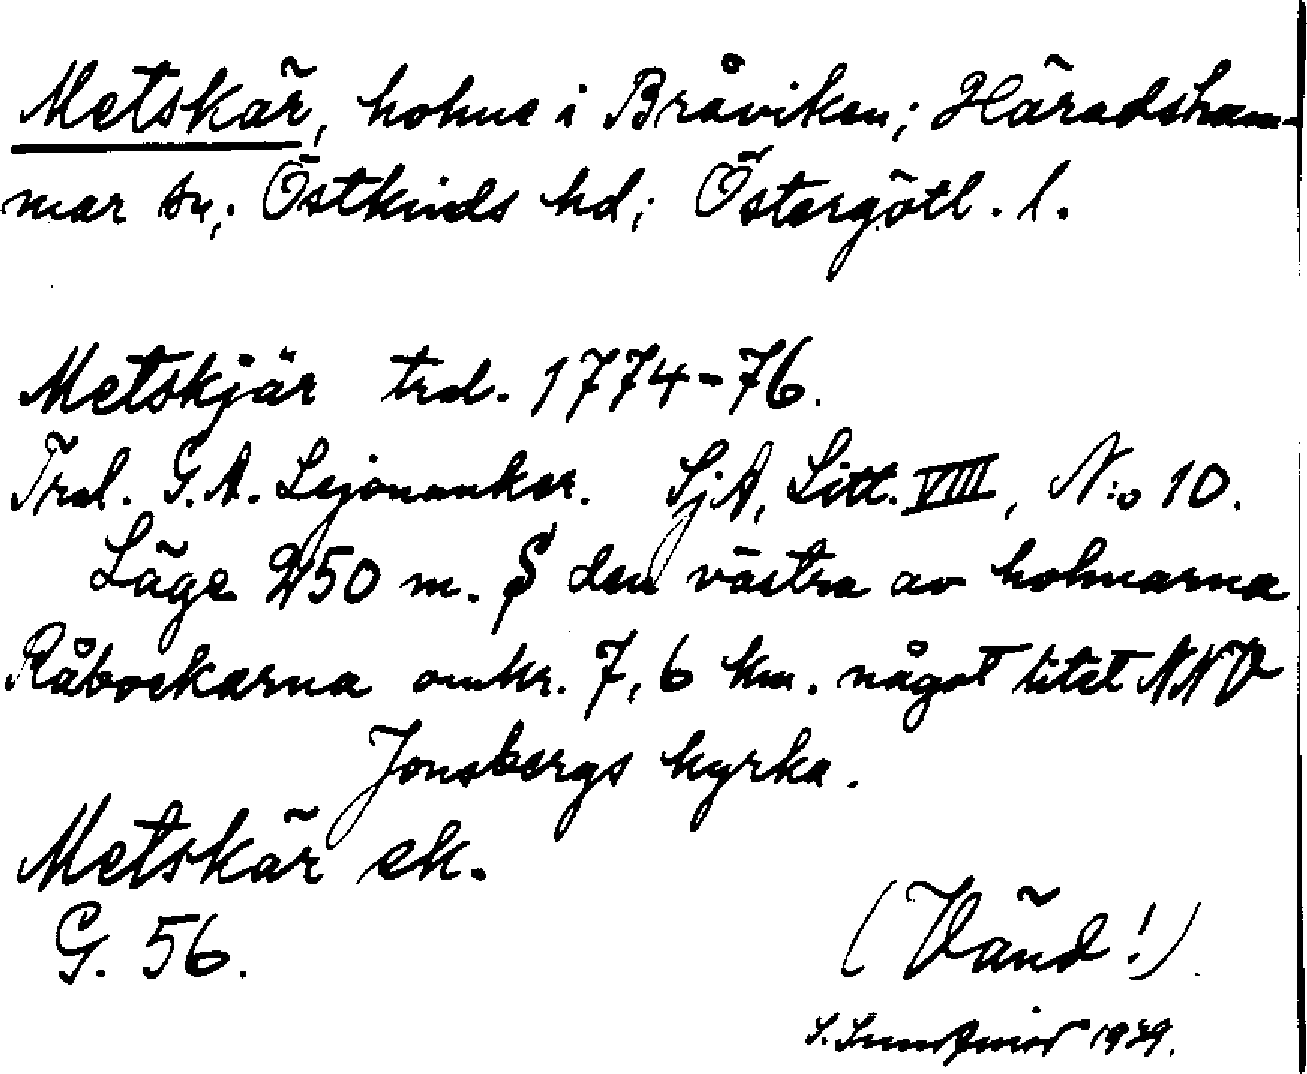 Metskär, holme i Bråviken; Häradsham-
mar sn; Östkinds hd; Östergötl. l.
Metskjär trd. 1774-76.
Trd. G.A. Lejonanker. SjA, Litt. VIII, N:o 10.
Läge 250 m. S den västra av holmarna
Råbockarna omkr. 7,6 km. något litet NNV
Jonsbergs kyrka.
Metskär ek.
G. 56.
(Vänd!)
S. 1939.